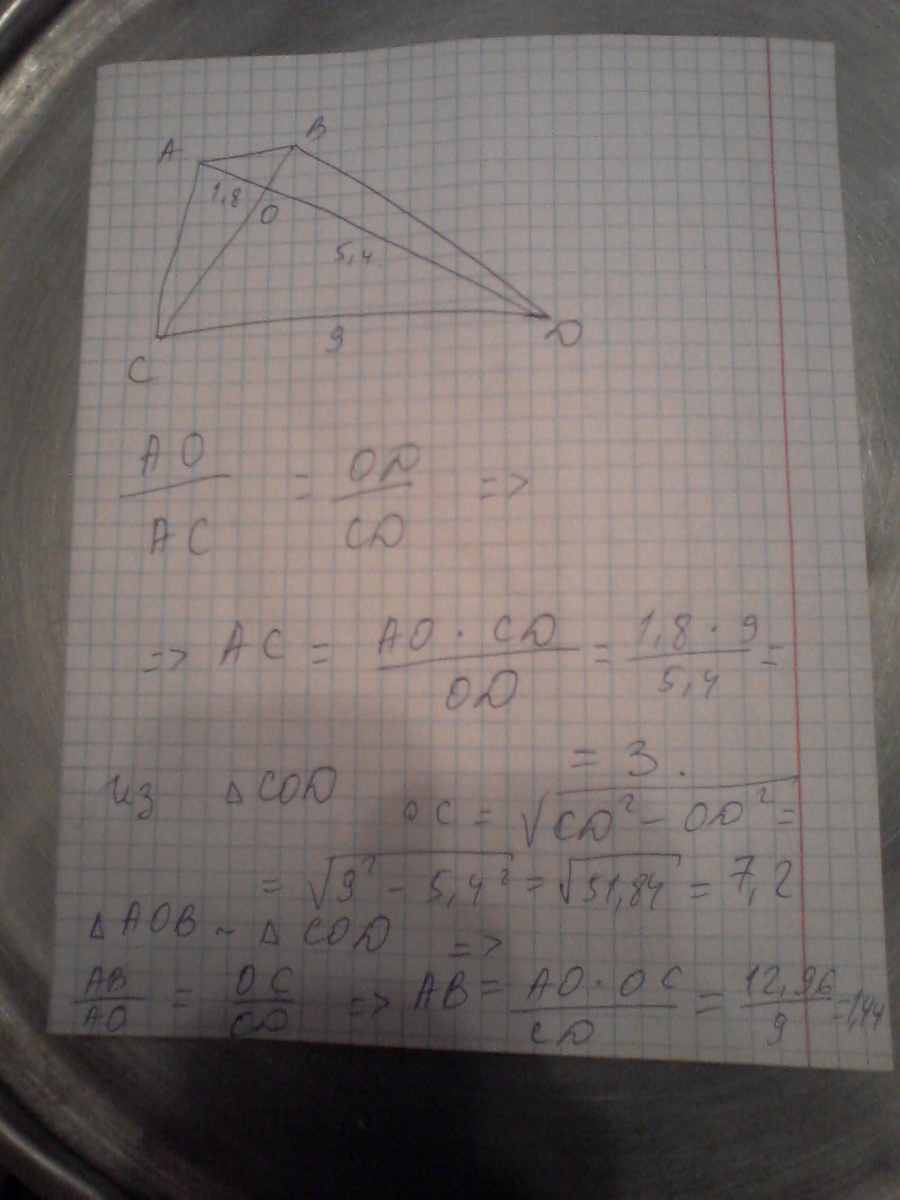 A B
1,8 O
5,4
9
C D
AO/AC = OD/CD =>
=> AC = AO · CD / OD = 1,8 · 9 / 5,4 =
= 3.
из △COD OC = √(CD² - OD²) =
= √(9² - 5,4²) = √51,84 = 7,2
△AOB ~ △COD =>
AB/AO = OC/CD => AB = AO · OC / CD = 12,96 / 9 = 1,44